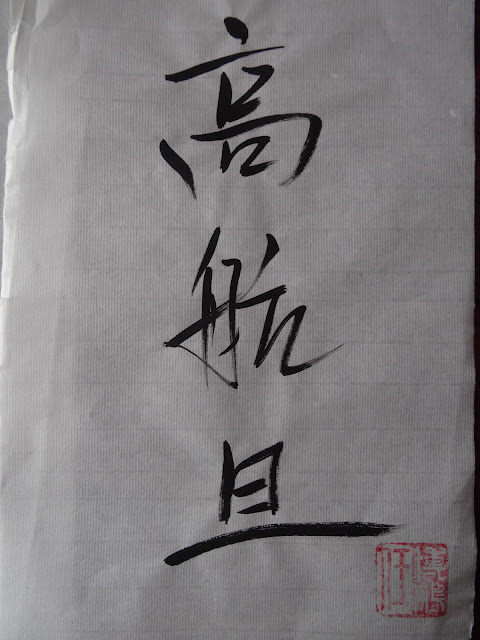 高航旦